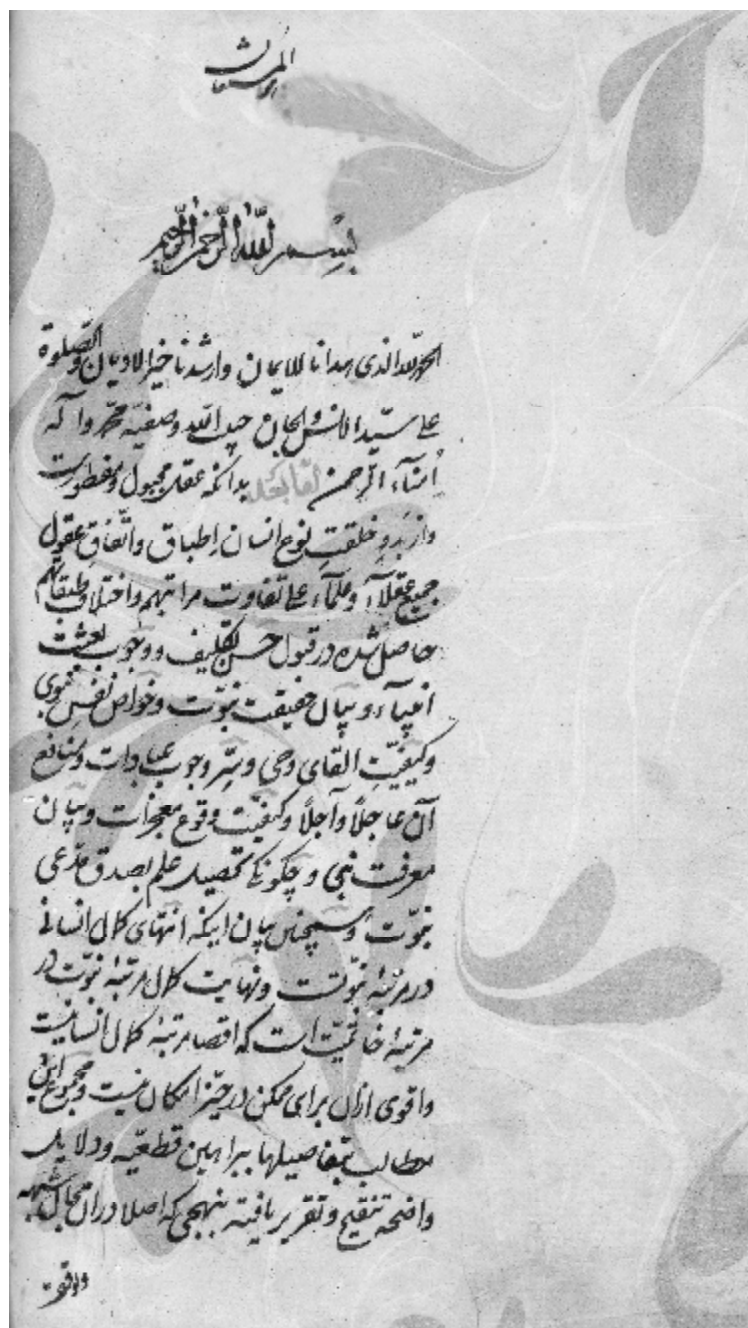 بسم الله الرحمن الرحیم
الحمد لله الذی هدانا للایمان وارشدنا خیر الادیان والصلوة
علی سید الانس والجان حبیب الله وصفیه محمد وآله
اُمناء الرحمن اما بعد بدانکه عقل مجبول ومفطورست
واز بدو خلقت نوع انسان اطباق واتفاق عقول
جمیع عقلاء وعلماء علی تفاوت مراتبهم واختلاف طبقاتهم
حاصل شده در قبول حسن تکلیف ووجوب بعثت
انبیاء وبیان حقیقت نبوت وخواص نفس نبوی
وکیفیت القای وحی وسر وجوب عبادات ومنافع
آن عاجلاً وآجلاً وکیفیت وقوع معجزات وبیان
معرفت نبی وچکونکی تحصیل علم بصدق مدعی
نبوت وهمچنین بیان اینکه انتهای کمال انسانی
در مرتبهٔ نبوتست ونهایت کمال مرتبهٔ نبوت در
مرتبهٔ خاتمیت است که اقصا مرتبهٔ کمال انسانیت
واقوی ازان برای ممکن در حیز امکان نیست ومجموع این
مطالب بتفاصیلها ببراهین قطعیه ودلایل
واضحه تنقیح وتقریر یافته بنهجی که اصلا دران مجال شبهه